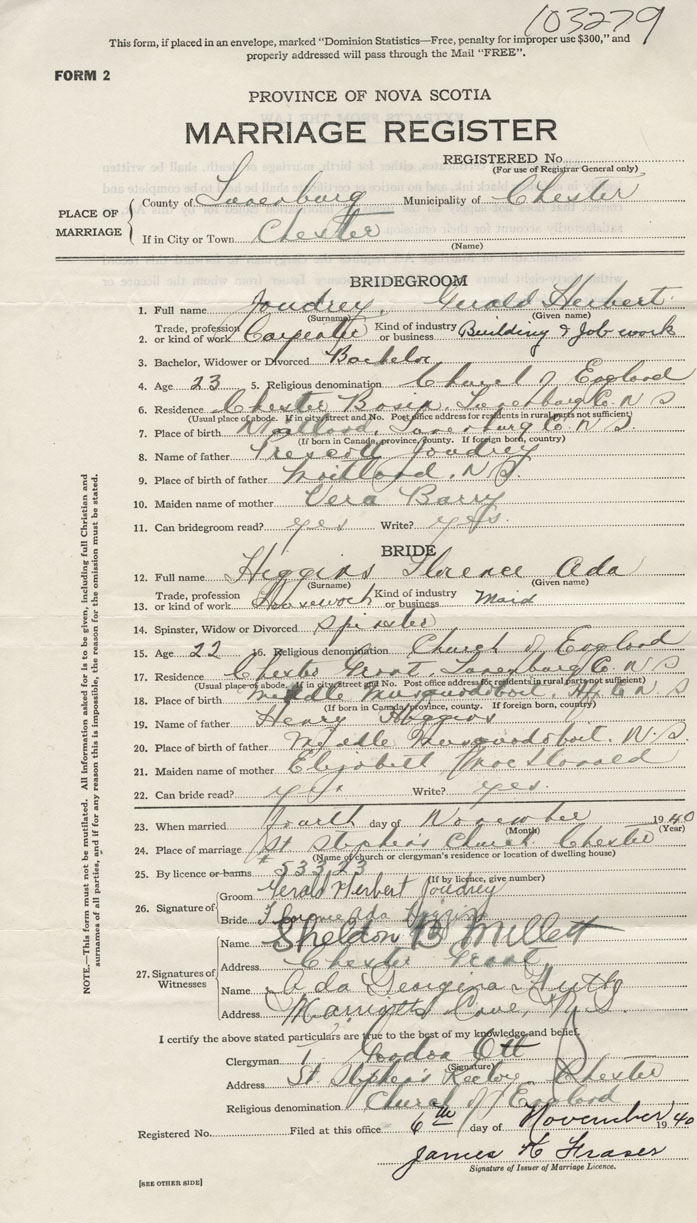 103279
This form, if placed in an envelope, marked "Dominion Statistics—Free, penalty for improper use $300," and
properly addressed will pass through the Mail "FREE".
FORM 2
PROVINCE OF NOVA SCOTIA
MARRIAGE REGISTER
REGISTERED No.
(For use of Registrar General only)
PLACE OF MARRIAGE
County of Lunenburg Municipality of Chester
If in City or Town Chester
(Name)
BRIDEGROOM
1. Full name Joudrey, Gerald Herbert
(Surname) (Given name)
2. Trade, profession or kind of work Carpenter Kind of industry or business Building & Job work
3. Bachelor, Widower or Divorced Bachelor
4. Age 23 5. Religious denomination Church of England
6. Residence Chester Basin, Lunenburg Co. N S
(Usual place of abode. If in city street and No. Post office address for residents in rural parts not sufficient)
7. Place of birth Maitland, Lunenburg Co. N S.
(If born in Canada, province, county. If foreign born, country)
8. Name of father Prescott Joudrey
9. Place of birth of father Maitland, N S
10. Maiden name of mother Vera Barry
11. Can bridegroom read? yes Write? yes.
BRIDE
12. Full name Higgins Florence Ada
(Surname) (Given name)
13. Trade, profession or kind of work Housework Kind of industry or business Maid
14. Spinster, Widow or Divorced Spinster
15. Age 22 16. Religious denomination Church of England
17. Residence Chester Grant, Lunenburg Co. N S
(Usual place of abode. If in city street and No. Post office address for residents in rural parts not sufficient)
18. Place of birth Middle Musquodoboit, Hfx Co N S
(If born in Canada, province, county. If foreign born, country)
19. Name of father Henry Higgins
20. Place of birth of father Middle Musquodoboit. N. S.
21. Maiden name of mother Elizabeth MacDonald
22. Can bride read? yes. Write? yes.
23. When married fourth day of November 1940
(Month) (Year)
24. Place of marriage St Stephen's Church Chester
(Name of church or clergyman's residence or location of dwelling house)
25. By licence or banns # 53323
(If by licence, give number)
26. Signature of
Groom Gerald Herbert Joudrey
Bride Florence Ada Higgins
27. Signatures of Witnesses
Name Sheldon B Millett
Address Chester Grant
Name Ada Georgina
Address Marriotts Cove, N. S.
I certify the above stated particulars are true to the best of my knowledge and belief.
Clergyman T. Gordon Ott
(Signature)
Address St Stephen's Rectory Chester
Religious denomination Church of England
Registered No. Filed at this office 6th day of November 1940
James K Fraser
Signature of Issuer of Marriage Licence.
[SEE OTHER SIDE]
NOTE.—This form must not be mutilated. All information asked for is to be given, including full Christian and
surnames of all parties, and if for any reason this is impossible, the reason for the omission must be stated.